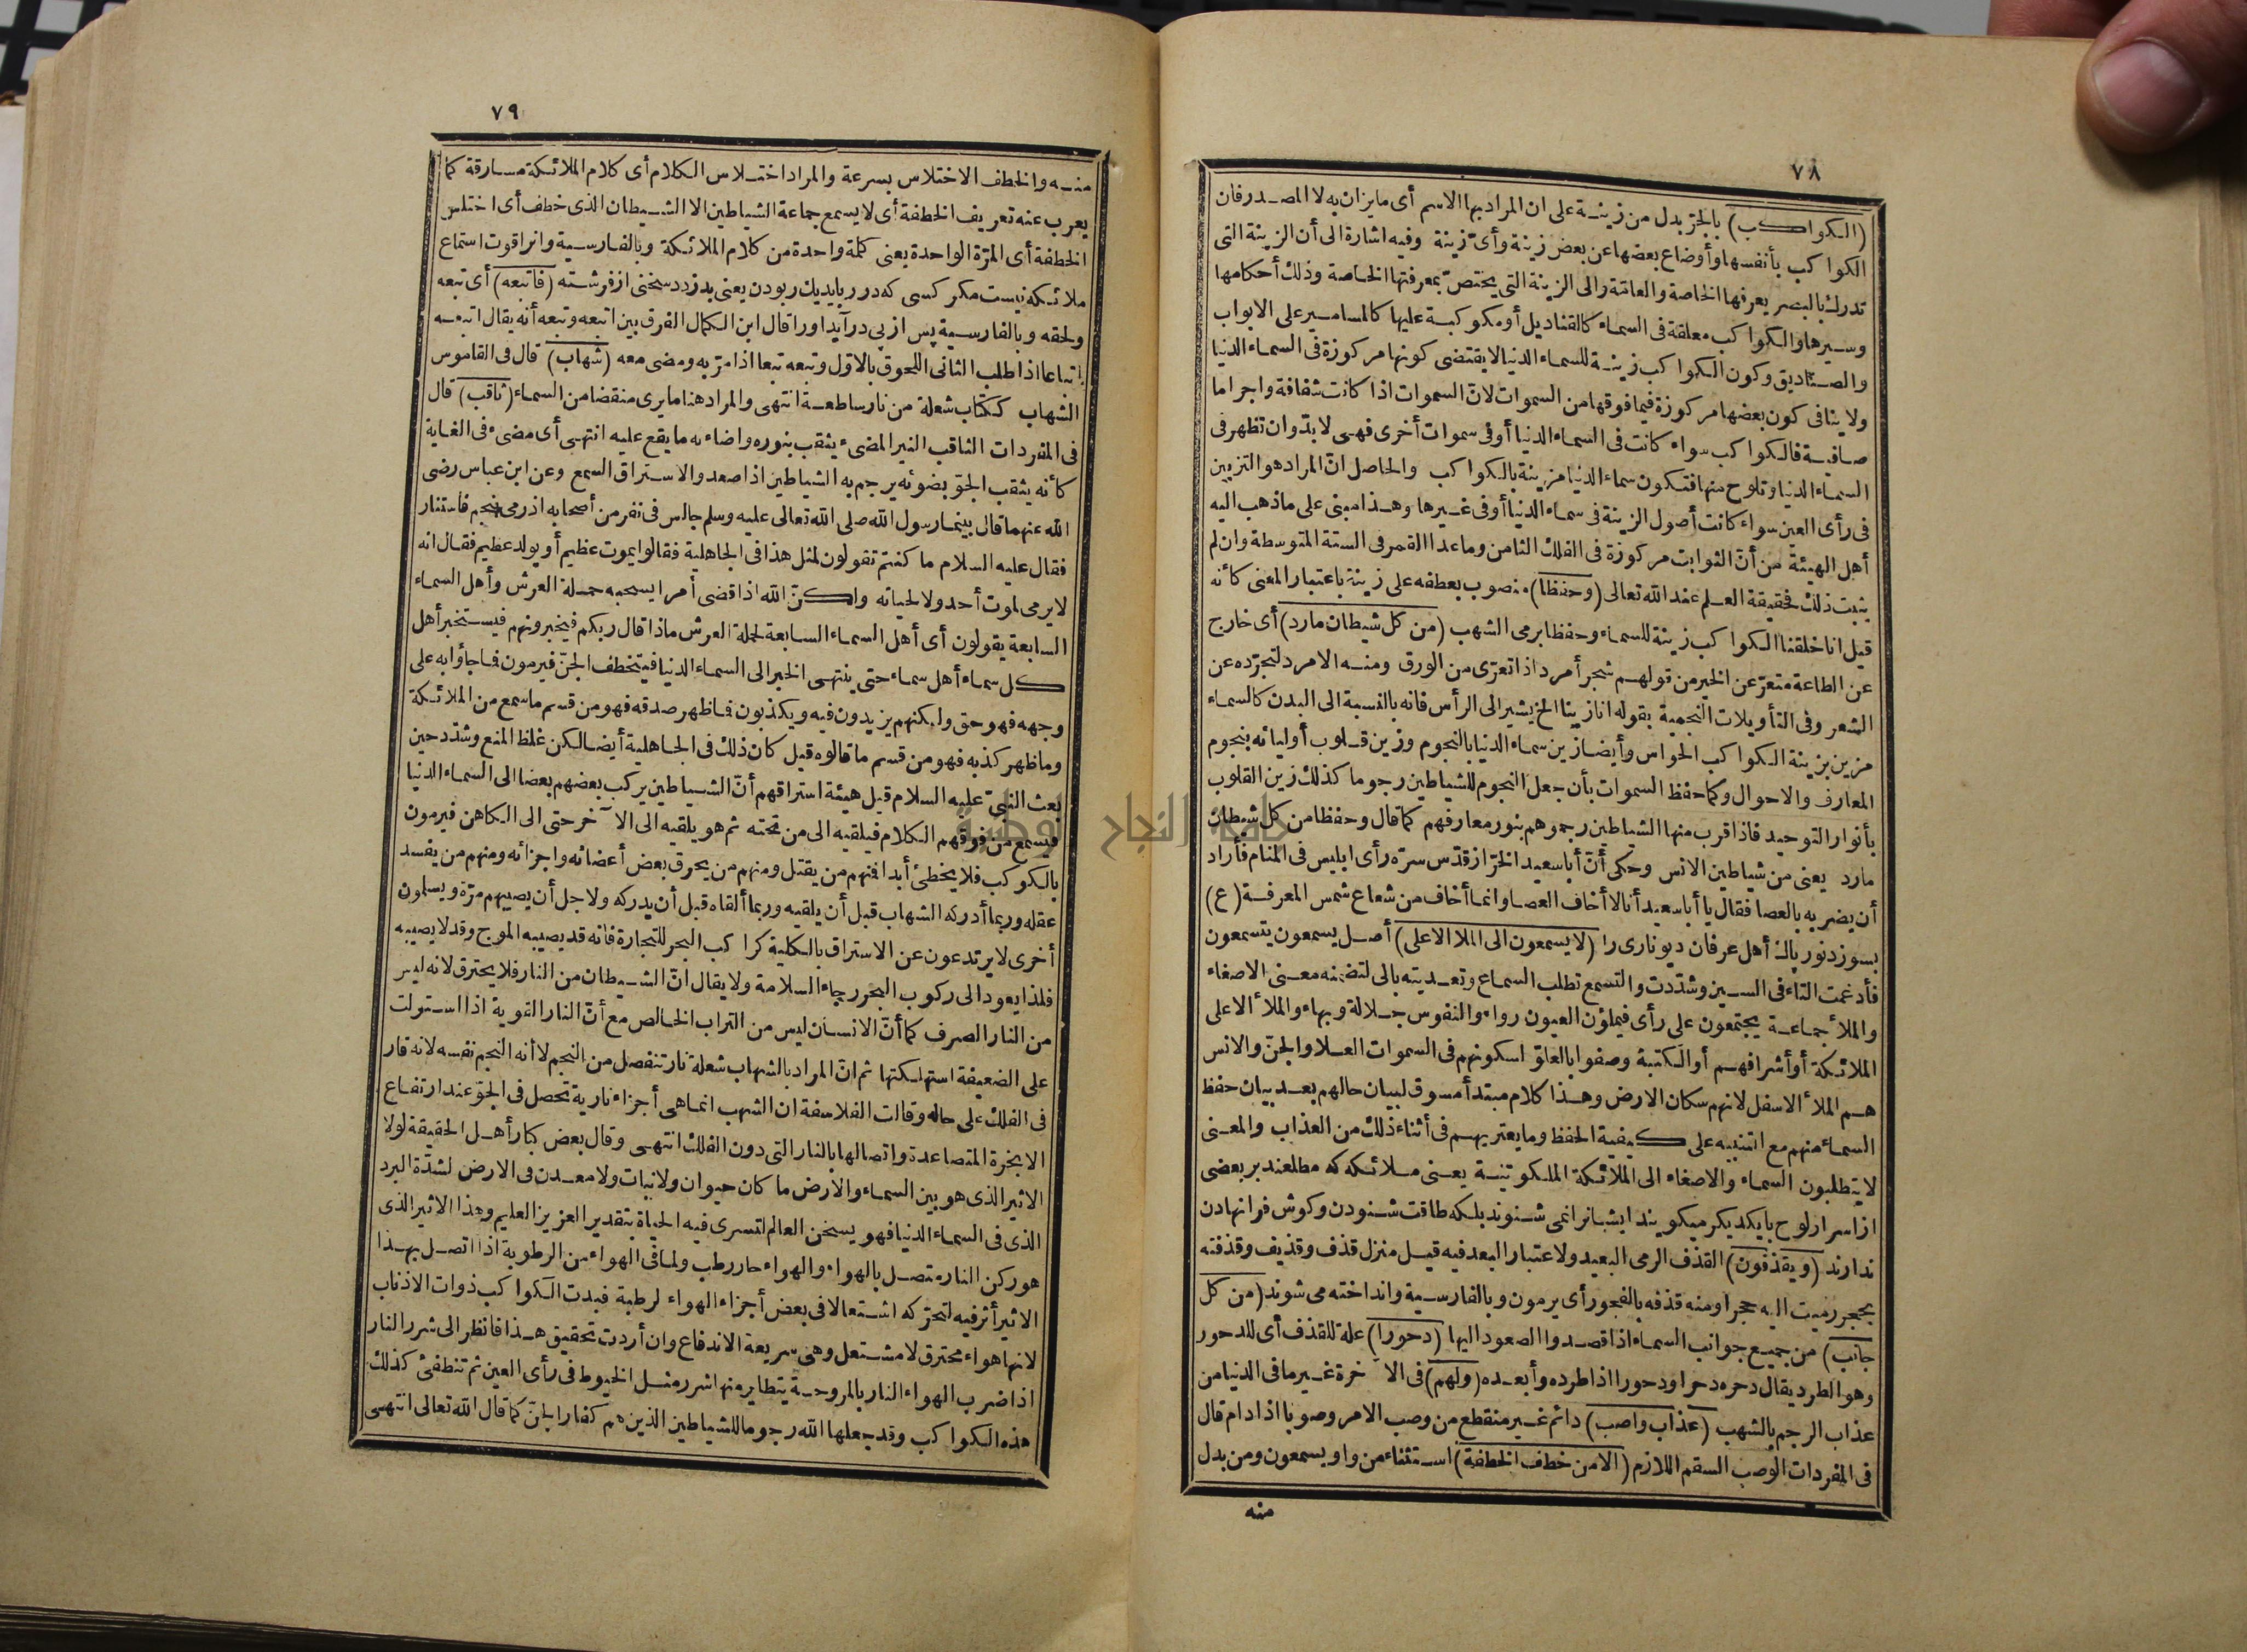 ٧٨
(الكواكب) بالجرّ بدل من زينة على ان المراد بها الاسم أى ما يزان به لا المصدر فان
الكواكب بأنفسها وأوضاع بعضها عن بعض زينة وأىّ زينة وفيه اشارة الى أن الزينة التى
تدرك بالبصر يعرفها الخاصة والعامّة والى الزينة التي يختصّ بمعرفتها الخاصة وذلك أحكامها
وسيرها والكواكب معلقة فى السماء كالقناديل أو مكوكبة عليها كالمسامير على الابواب
والصناديق وكون الكواكب زينة للسماء الدنيا لا يقتضى كونها مركوزة فى السماء الدنيا
ولا ينافى كون بعضها مركوزة فيما فوقها من السموات لانّ السموات اذا كانت شفافة واجراما
صافية فالكواكب سواء كانت فى السماء الدنيا أو فى سموات أخرى فهى لا بدّ وان تظهر فى
السماء الدنيا وتلوح منها فتكون سماء الدنيا مزينة بالكواكب والحاصل انّ المراد هو التزيين
فى رأى العين سواء كانت أصول الزينة فى سماء الدنيا أو فى غيرها وهذا مبنى على ما ذهب اليه
أهل الهيئة من أنّ الثوابت مركوزة فى الفلك الثامن وما عدا القمر فى الستة المتوسطة وان لم
يثبت ذلك فحقيقة العلم عند الله تعالى (وحفظا) منصوب بعطفه على زينة باعتبار المعنى كأنه
قيل انا خلقنا الكواكب زينة للسماء وحفظا برمى الشهب (من كل شيطان مارد) أى خارج
عن الطاعة متعرّ عن الخير من قولهم شجر أمرد اذا تعرّى من الورق ومنه الامرد لتجرّده عن
الشعر وفى التأويلات النجمية بقوله انا زينا الخ يشير الى الرأس فانه بالنسبة الى البدن كالسماء
مزين بزينة الكواكب الحواس وأيضا زين سماء الدنيا بالنجوم وزين قلوب أوليائه بنجوم
المعارف والاحوال وكما حفظ السموات بأن جعل النجوم للشياطين رجوما كذلك زين القلوب
بأنوار التوحيد فاذا قرب منها الشياطين رجموهم بنور معارفهم كما قال وحفظا من كل شيطان
مارد يعنى من شياطين الانس وحكى أنّ أبا سعيد الخرّاز قدّس سرّه رأى ابليس فى المنام فأراد
أن يضربه بالعصا فقال يا أبا سعيد أنا لا أخاف العصا وانما أخاف من شعاع شمس المعرفة (ع)
بسوزد نور پاك أهل عرفان ديو نارى را (لا يسمعون الى الملا الاعلى) أصل يسمعون يتسمعون
فأدغمت التاء فى السين وشدّدت والتسمع تطلب السماع وتعديته بالى لتضمنه معنى الاصغاء
والملأ جماعة يجتمعون على رأى فيملؤن العيون رواء والنفوس جلالة وبهاء والملأ الاعلى
الملائكة أو أشرافهم أو الكتبة وصفوا بالعلوّ لسكونهم فى السموات العلا والجنّ والانس
هم الملأ الاسفل لانهم سكان الارض وهذا كلام مبتدأ مسوق لبيان حالهم بعد بيان حفظ
السماء منهم مع التنبيه على كيفية الحفظ وما يعتريهم فى أثناء ذلك من العذاب والمعنى
لا يتطلبون السماء والاصغاء الى الملائكة الملكوتية يعنى ملائكه كه مطلعند بر بعضى
از اسرار لوح با يكديكر ميكويند ايشانرا نمى شنوند بلكه طاقت شنودن وكوش فرا نهادن
ندارند (ويقذفون) القذف الرمى البعيد ولاعتبار البعد فيه قيل منزل قذف وقذيف وقذفته
بحجر رميت اليه حجرا ومنه قذفه بالفجور أى يرمون وبالفارسية وانداخته مى شوند (من كل
جانب) من جميع جوانب السماء اذا قصدوا الصعود اليها (دحورا) علة للقذف أى للدحور
وهو الطرد يقال دحره دحرا ودحورا اذا طرده وأبعده (ولهم) فى الآخرة غير ما فى الدنيا من
عذاب الرجم بالشهب (عذاب واصب) دائم غير منقطع من وصب الامر وصوبا اذا دام قال
فى المفردات الوصب السقم اللازم (الا من خطف الخطفة) استثناء من واو يسمعون ومن بدل
منه
٧٩
منه والخطف الاختلاس بسرعة والمراد اختلاس الكلام أى كلام الملائكة مسارقة كما
يعرب عنه تعريف الخطفة أى لا يسمع جماعة الشياطين الا الشيطان الذى خطف أى اختلس
الخطفة أى المرّة الواحدة يعنى كلمة واحدة من كلام الملائكة وبالفارسية وانرا قوت استماع
ملائكه نيست مكر كسى كه در ربايد يك ربودن يعنى بدزدد سخنى از فرشته (فأتبعه) أى تبعه
ولحقه وبالفارسية پس از پى در آيد او را قال ابن الكمال الفرق بين اتبعه وتبعه أنه يقال اتبعه
اتباعا اذا طلب الثانى اللحوق بالاوّل وتبعه تبعا اذا مرّ به ومضى معه (شهاب) قال فى القاموس
الشهاب ككتاب شعلة من نار ساطعة انتهى والمراد هنا ما يرى منقضا من السماء (ثاقب) قال
فى المفردات الثاقب النير المضىء يثقب بنوره واضاءته ما يقع عليه انتهى أى مضىء فى الغاية
كأنه يثقب الجوّ بضوئه يرجم به الشياطين اذا صعدوا لاستراق السمع وعن ابن عباس رضى
الله عنهما قال بينما رسول الله صلى الله تعالى عليه وسلم جالس فى نفر من أصحابه اذ رمى بنجم فاستنار
فقال عليه السلام ما كنتم تقولون لمثل هذا فى الجاهلية فقالوا يموت عظيم أو يولد عظيم فقال انه
لا يرمى لموت أحد ولا لحياته ولكنّ الله اذا قضى أمرا يسبحه حملة العرش وأهل السماء
السابعة يقولون أى أهل السماء السابعة لحملة العرش ماذا قال ربكم فيخبرونهم فيستخبر أهل
كل سماء أهل سماء حتى ينتهى الخبر الى السماء الدنيا فيتخطف الجنّ فيرمون فما جاؤا به على
وجهه فهو حق ولكنهم يزيدون فيه ويكذبون فما ظهر صدقه فهو من قسم ما سمع من الملائكة
وما ظهر كذبه فهو من قسم ما قالوه قيل كان ذلك فى الجاهلية أيضا لكن غلظ المنع وشدّد حين
بعث النبىّ عليه السلام قيل هيئة استراقهم أنّ الشياطين يركب بعضهم بعضا الى السماء الدنيا
فيسمع من فوقهم الكلام فيلقيه الى من تحته ثم هو يلقيه الى الآخر حتى الى الكاهن فيرمون
بالكوكب فلا يخطئ أبدا فمنهم من يقتل ومنهم من يحرق بعض أعضائه واجزائه ومنهم من يفسد
عقله وربما أدركه الشهاب قبل أن يلقيه وربما ألقاه قبل أن يدركه ولاجل أن يصيبهم مرّة ويسلمون
أخرى لا يرتدعون عن الاستراق بالكلية كراكب البحر للتجارة فانه قد يصيبه الموج وقد لا يصيبه
فلذا يعود الى ركوب البحر رجاء السلامة ولا يقال انّ الشيطان من النار فلا يحترق لانه ليس
من النار الصرف كما أنّ الانسان ليس من التراب الخالص مع أنّ النار القوية اذا استولت
على الضعيفة استهلكتها ثم انّ المراد بالشهاب شعلة نار تنفصل من النجم لا أنه النجم نفسه لانه قار
فى الفلك على حاله وقالت الفلاسفة ان الشهب انما هى أجزاء نارية تحصل فى الجوّ عند ارتفاع
الابخرة المتصاعدة واتصالها بالنار التى دون الفلك انتهى وقال بعض كبار أهل الحقيقة لولا
الاثير الذى هو بين السماء والارض ما كان حيوان ولا نبات ولا معدن فى الارض لشدّة البرد
الذى فى السماء الدنيا فهو يسخن العالم لتسرى فيه الحياة بتقدير العزيز العليم وهذا الاثير الذى
هو ركن النار متصل بالهواء والهواء حار رطب ولما فى الهواء من الرطوبة اذا اتصل بهذا
الاثير أثر فيه لتحرّكه اشتعالا فى بعض أجزاء الهواء لرطبة فبدت الكواكب ذوات الاذناب
لانها هواء محترق لا مشتعل وهى سريعة الاندفاع وان أردت تحقيق هذا فانظر الى شرر النار
اذا ضرب الهواء النار بالمروحة يتطاير منها شرر مثل الخيوط فى رأى العين ثم تنطفئ كذلك
هذه الكواكب وقد جعلها الله رجوما للشياطين الذين هم كفار الجنّ كما قال الله تعالى انتهى